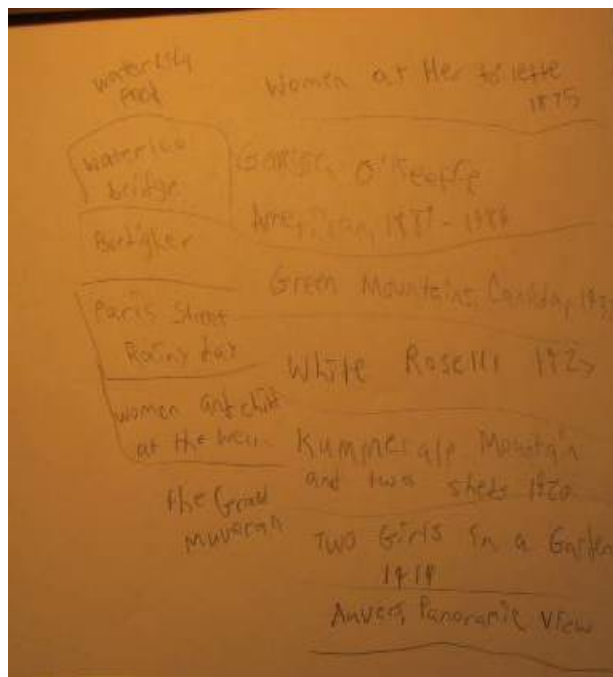 water Lily
Pond
Waterloo
bridge
Paris Street
Rainy day
women and child
at the well
the Grand
Muveran
Women at Her toilette
1875
O'Keeffe
American, 1887 - 1986
Green Mountains, Canada,
White
Kummeralp Mountain
and two sheds 1920
Two Girls in a Garden
1919
Auvers, Panoramic View